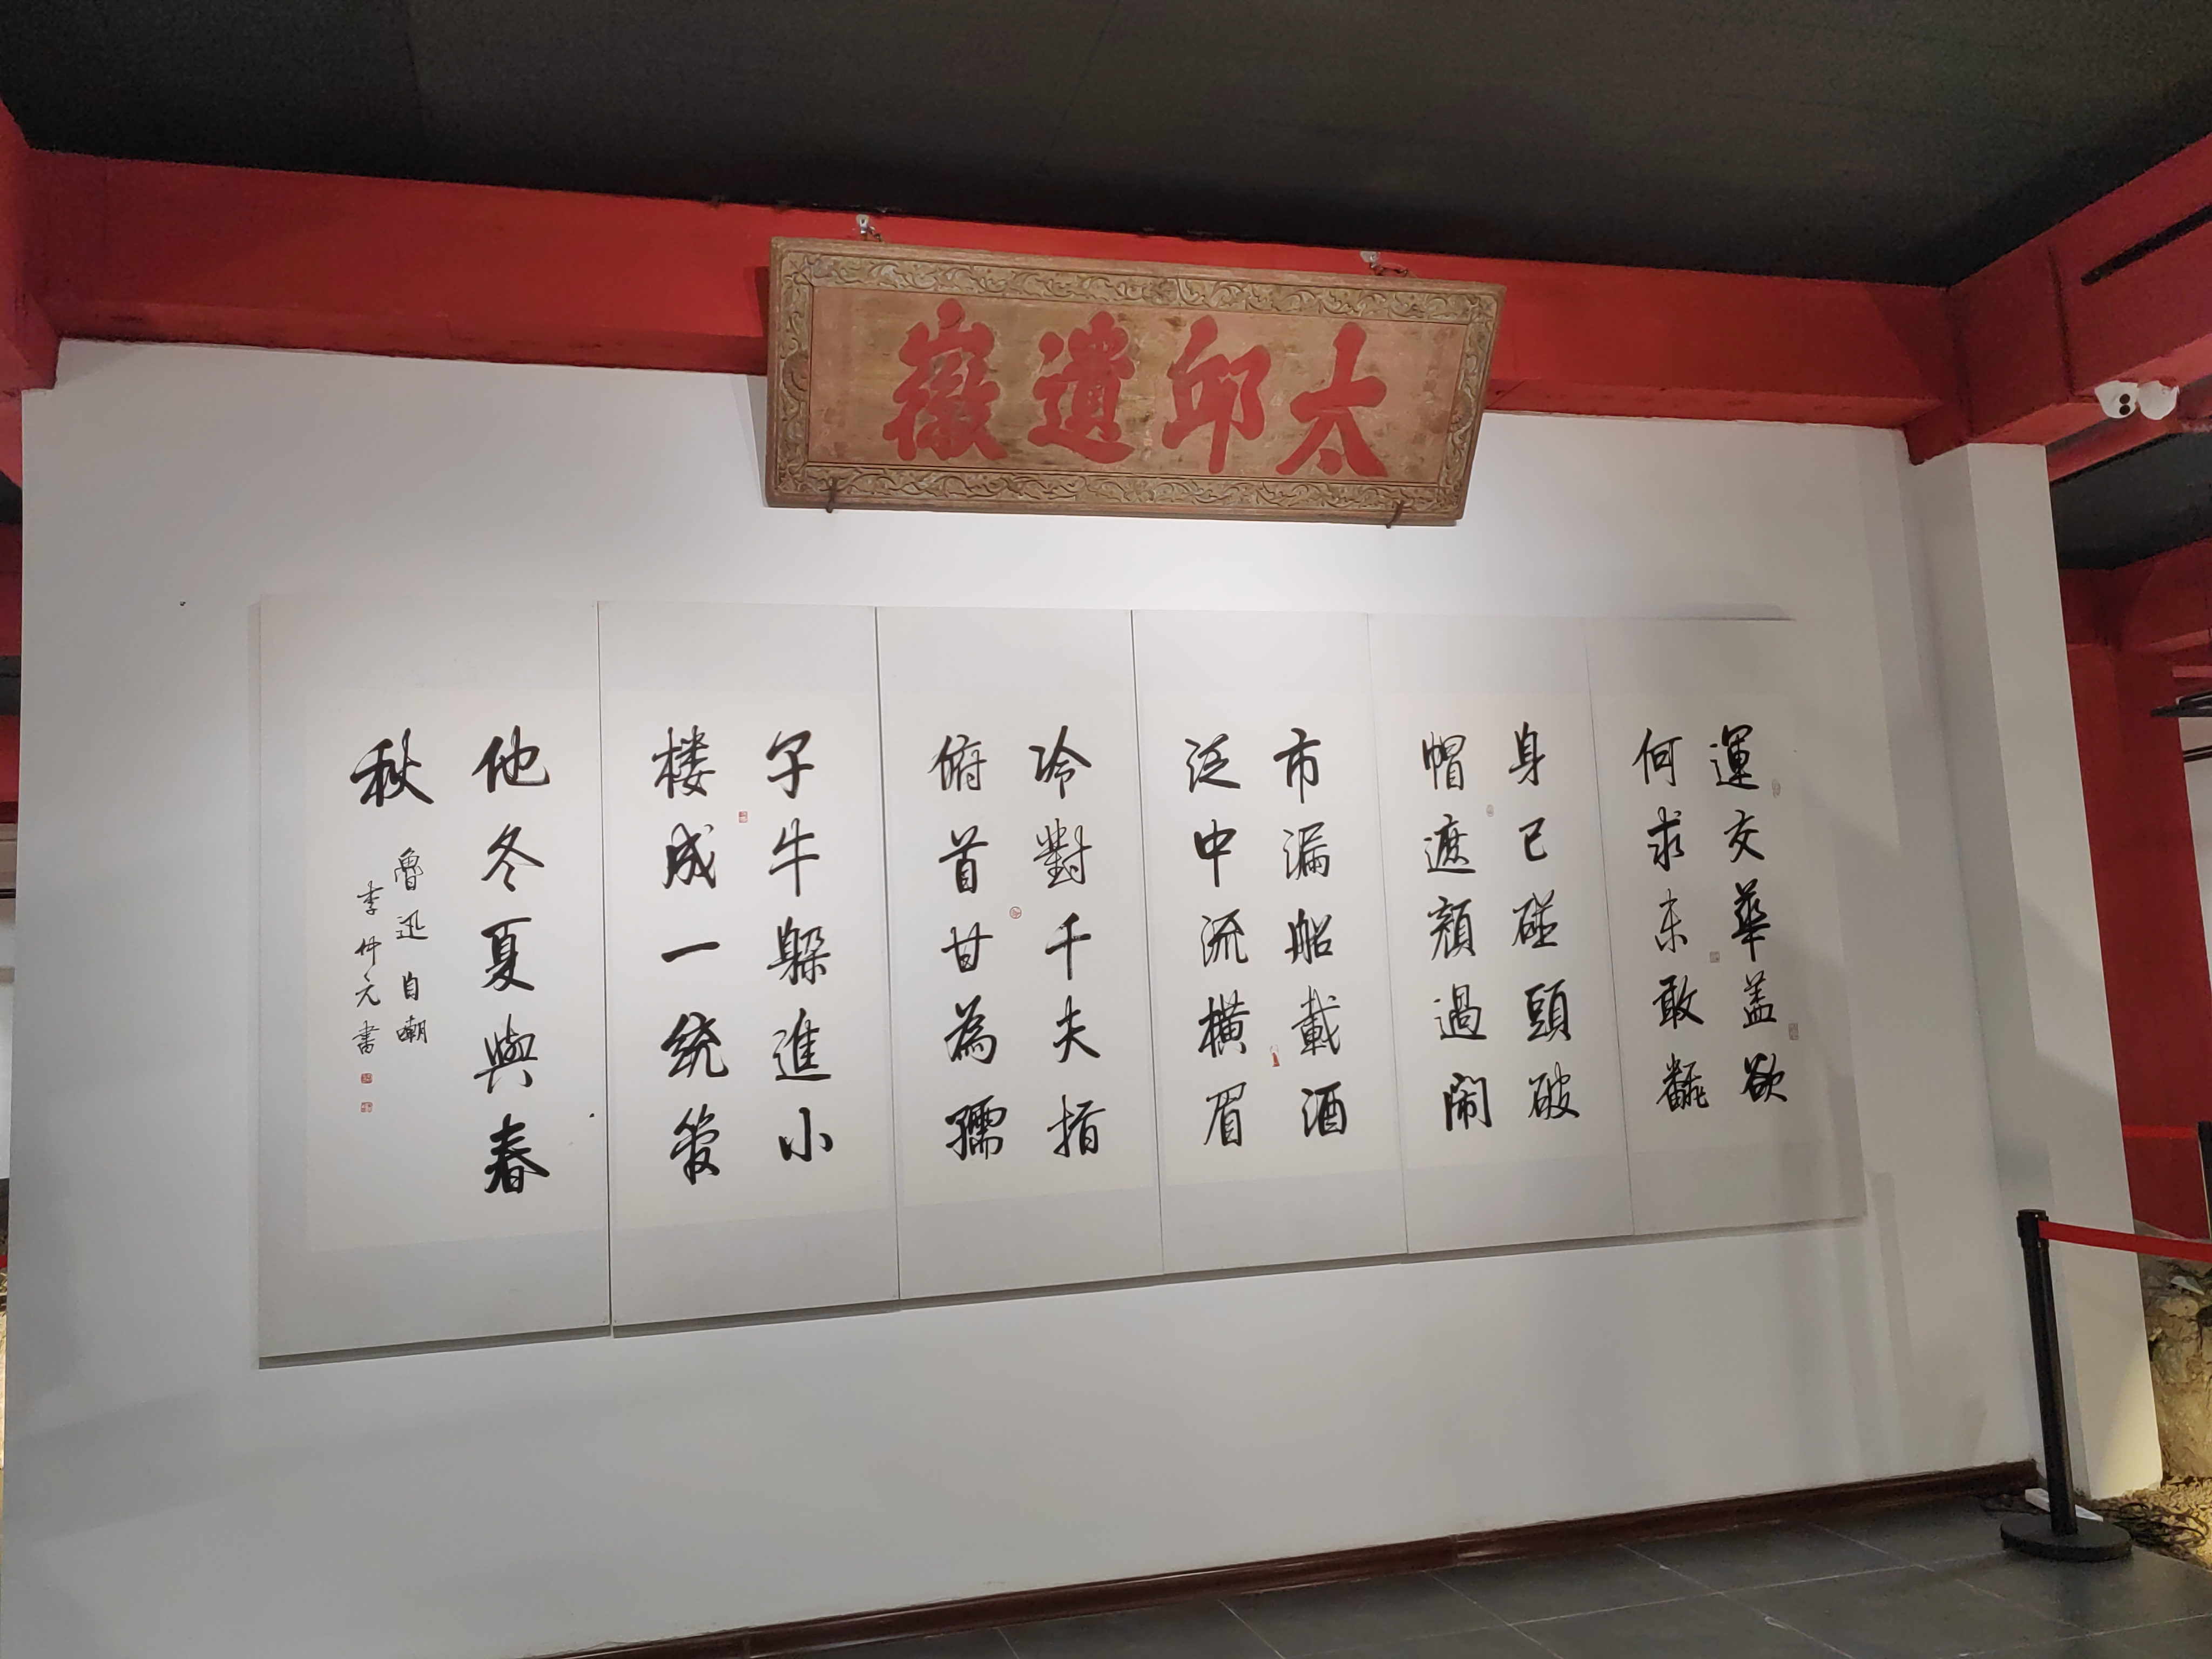 太邱遺徽
運交華盖欲
何求未敢飜
身已碰頭破
帽遮顔過闹
市漏船載酒
泛中流橫眉
冷對千夫指
俯首甘為孺
子牛躲進小
楼成一统管
他冬夏與春
秋
魯迅自嘲
李仲元書